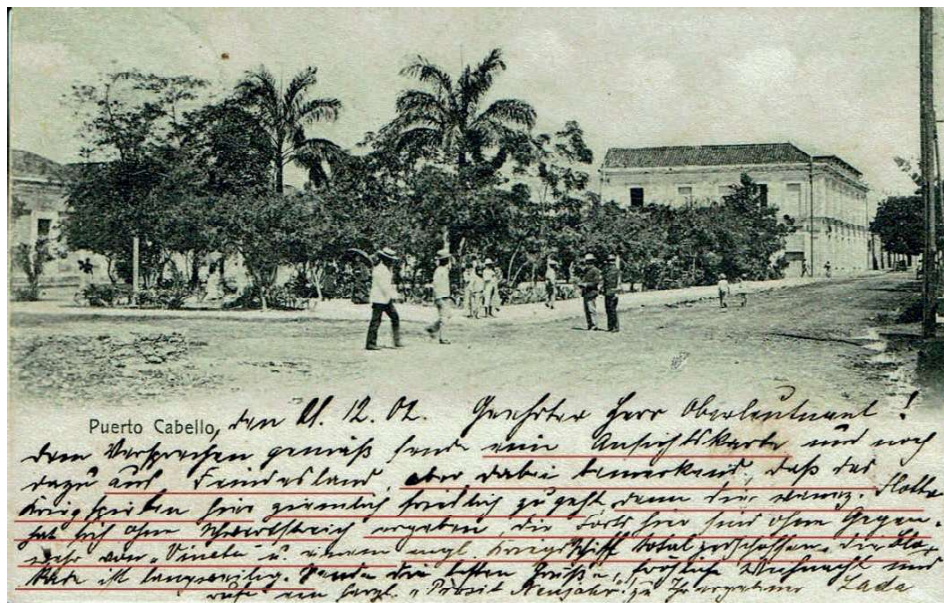 Puerto Cabello, den 21. 12. 02. Geehrter Herr Oberleutnant!
dem Versprechen gemäß sende eine Ansichtskarte und noch
dazu aus Feindesland, aber dabei bemerkend, daß das
Kriegspielen hier ziemlich friedlich zugeht, denn die venez. Flotte
hat sich ohne Schwertstreich ergeben, die Forts hier sind ohne Gegen-
wehr von "Vineta" u. einem engl. Kriegsschiff total zerschossen. die Blo-
kade ist langweilig. Sende die besten Grüße, fröhliche Weihnacht und
rufe ein "Prosit Neujahr" zu Ihr ergebener Lada